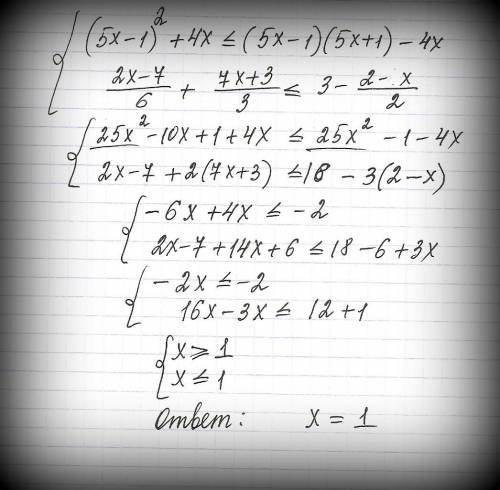 (5x-1)² + 4x ≤ (5x-1)(5x+1) - 4x
(2x-7)/6 + (7x+3)/3 ≤ 3 - (2-x)/2
25x² - 10x + 1 + 4x ≤ 25x² - 1 - 4x
2x - 7 + 2(7x+3) ≤ 18 - 3(2-x)
-6x + 4x ≤ -2
2x - 7 + 14x + 6 ≤ 18 - 6 + 3x
-2x ≤ -2
16x - 3x ≤ 12 + 1
x ≥ 1
x ≤ 1
Ответ: x = 1